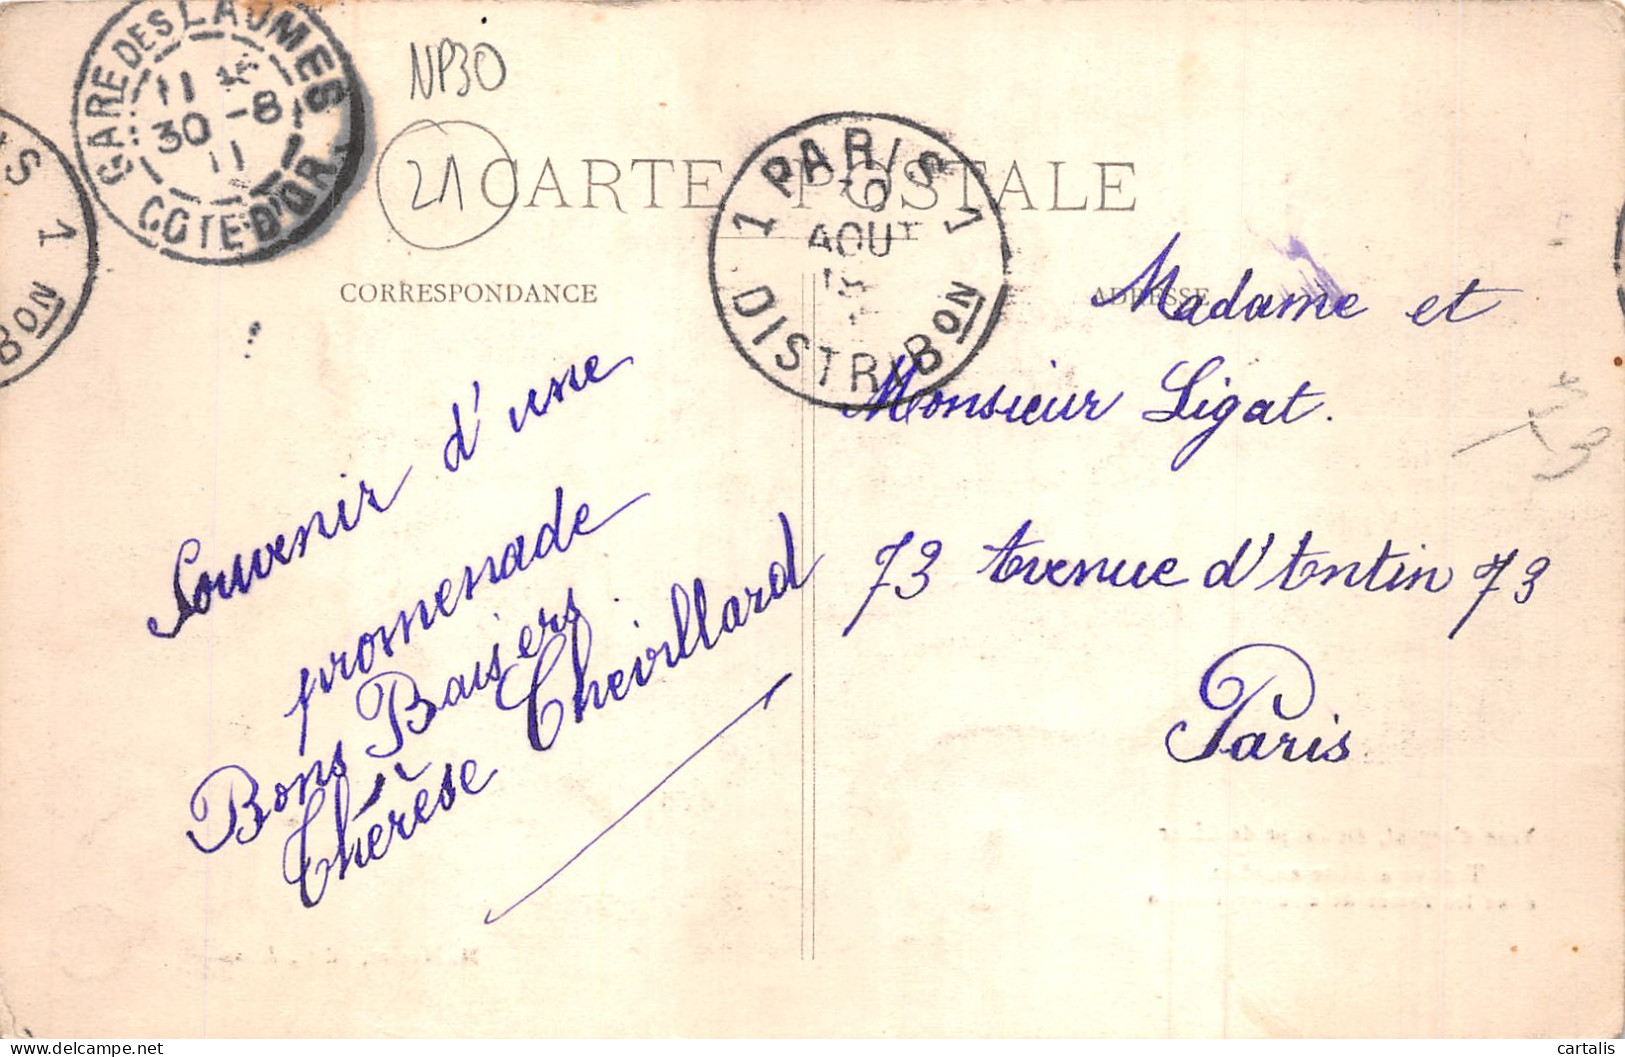 GARE DES LAUMES
11
30 -8
11
COTE-D'OR
NP30
21
CARTE POSTALE
1 PARIS 1
30
AOUT
DISTRIBON
S 1
BON
CORRESPONDANCE
ADRESSE
Souvenir d'une
promenade
Bons Baisers
Thérèse Chevillard
Madame et
Monsieur Ligat.
73 Avenue d'Antin 73
Paris
cartalis